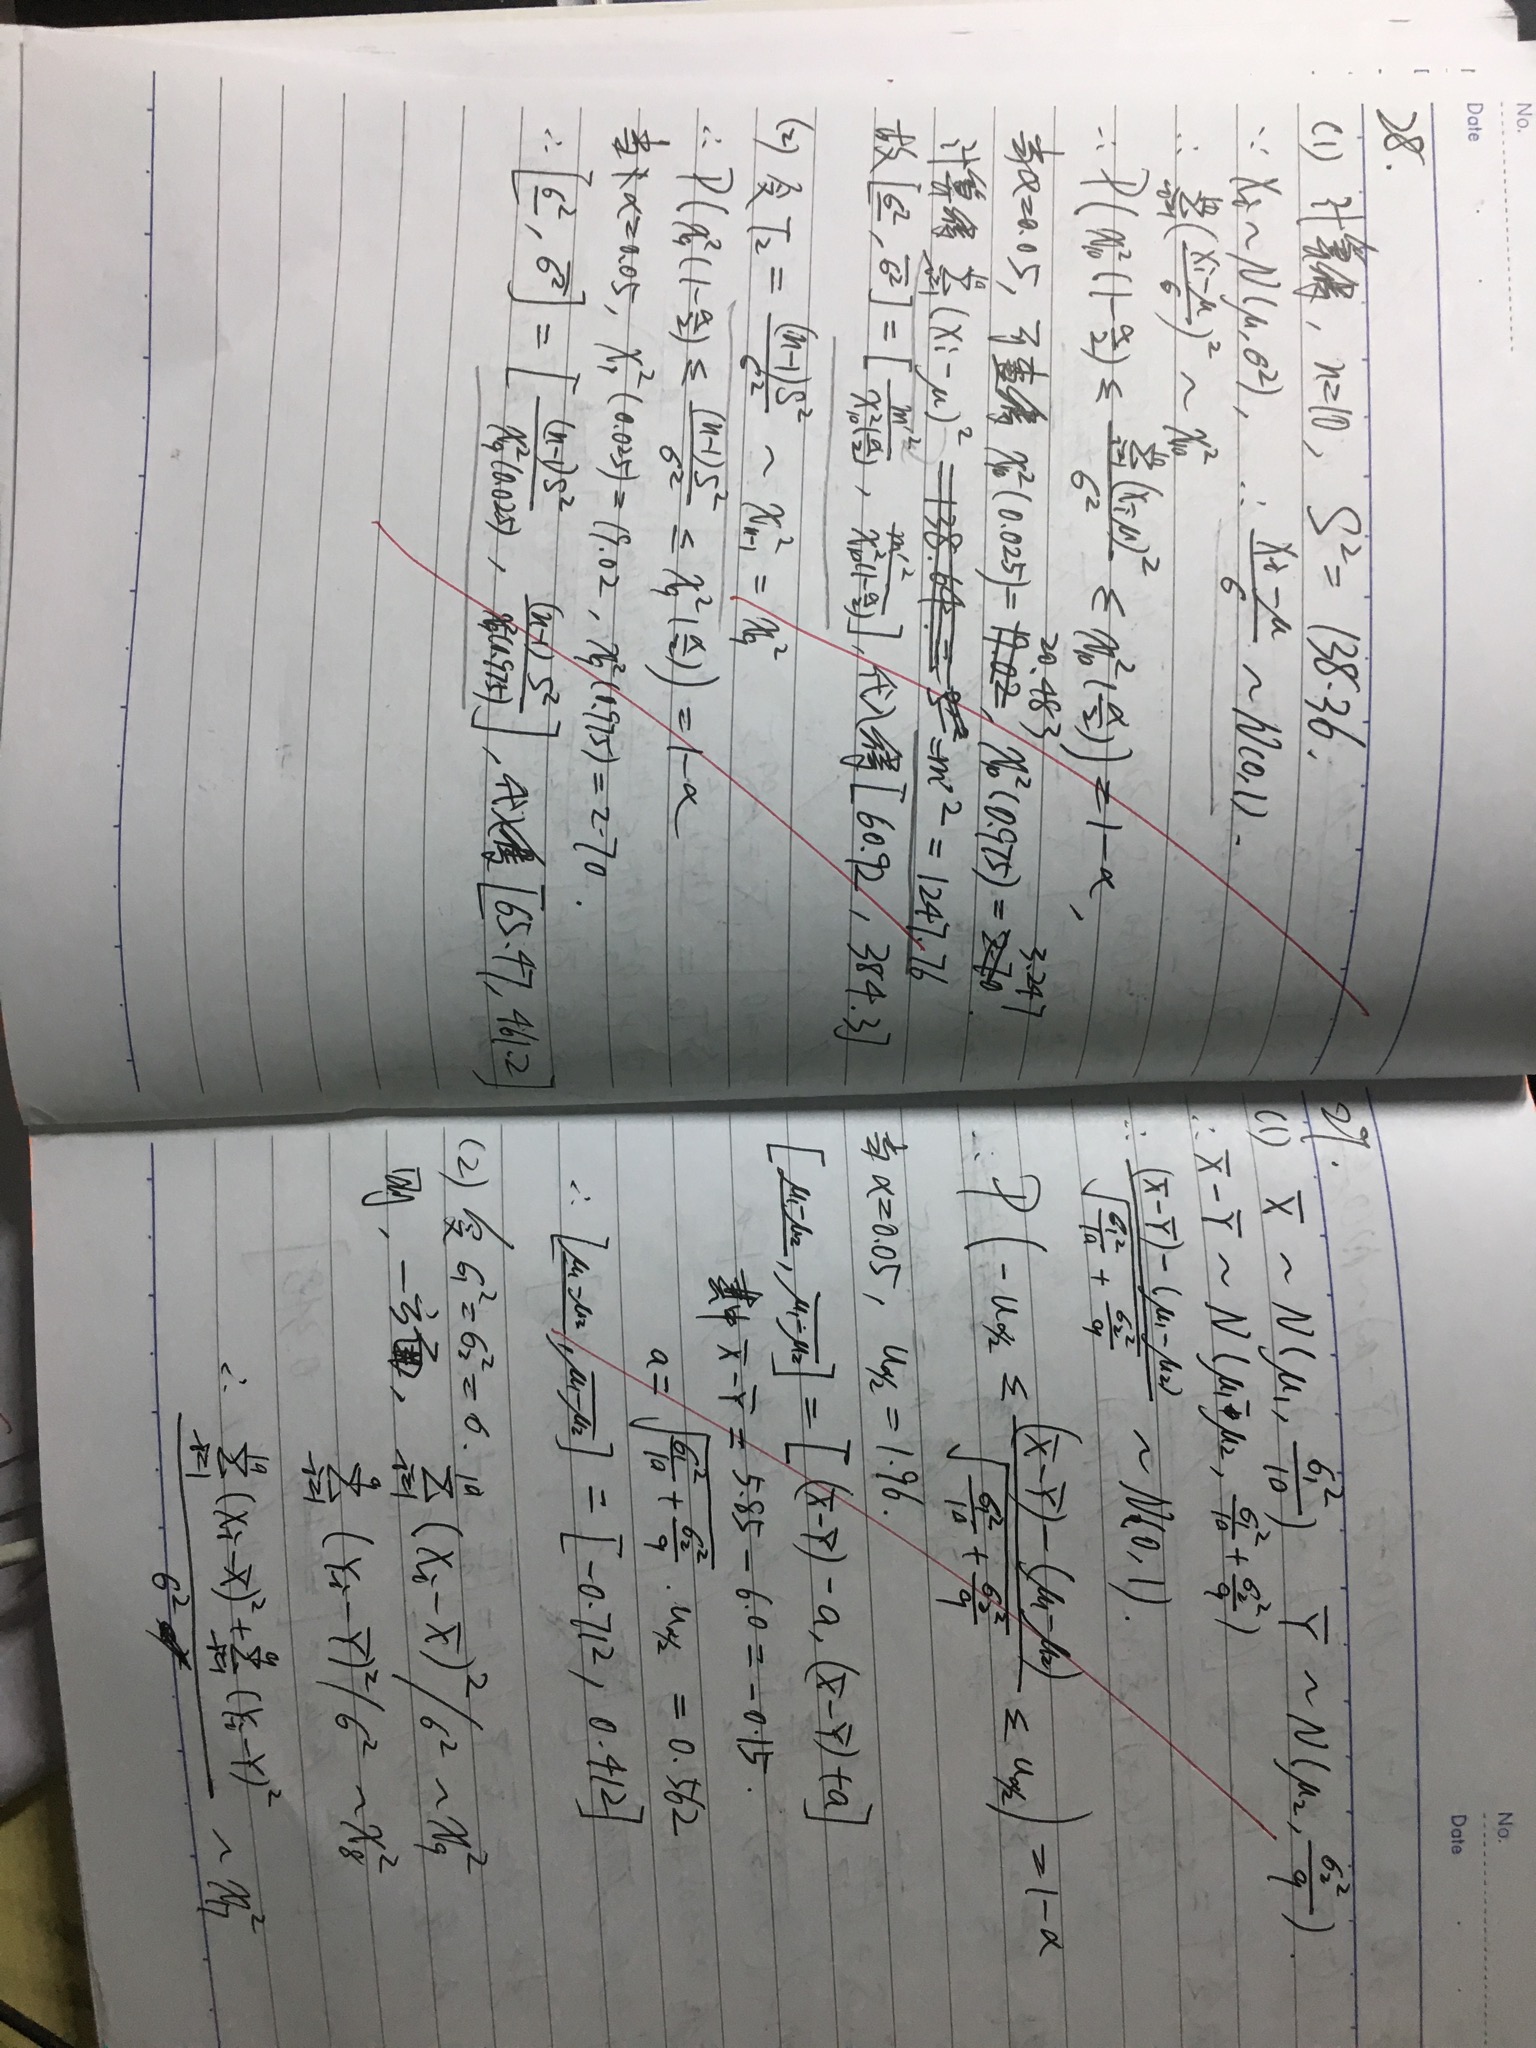 No.
Date
28.
(1) 计算得, n=10, S² = 138.36.
∵ Xi ~ N(μ, σ²), ∴ (Xi-μ)/σ ~ N(0,1).
∴ Σ_{i=1}^{10} ((Xi-μ)/σ)² ~ χ²₁₀
∴ P(χ²₁₀(1-α/2) ≤ Σ_{i=1}^{10}(Xi-μ)²/σ² ≤ χ²₁₀(α/2)) = 1-α,
当α=0.05, 可查得 χ²₁₀(0.025) = 20.483, χ²₁₀(0.975) = 3.247
计算得 Σ_{i=1}^{10}(Xi-μ)² = m'² = 1247.76
故 [σ², σ²] = [m'²/χ²₁₀(α/2), m'²/χ²₁₀(1-α/2)], 代入得 [60.92, 384.3]
(2) 令 T₂ = (n-1)S²/σ² ~ χ²ₙ₋₁ = χ²₉
∴ P(χ²₉(1-α/2) ≤ (n-1)S²/σ² ≤ χ²₉(α/2)) = 1-α
当 α=0.05, χ²₉(0.025) = 19.02, χ²₉(0.975) = 2.70.
∴ [σ², σ²] = [(n-1)S²/χ²₉(0.025), (n-1)S²/χ²₉(0.975)], 代入得 [65.47, 461.2]
No.
Date
29.
(1) X̄ ~ N(μ₁, σ₁²/10) Ȳ ~ N(μ₂, σ₂²/9).
∴ X̄-Ȳ ~ N(μ₁-μ₂, σ₁²/10 + σ₂²/9)
∴ ((X̄-Ȳ)-(μ₁-μ₂))/√(σ₁²/10 + σ₂²/9) ~ N(0,1).
∴ P(-u_{α/2} ≤ ((X̄-Ȳ)-(μ₁-μ₂))/√(σ₁²/10 + σ₂²/9) ≤ u_{α/2}) = 1-α
当 α=0.05, u_{α/2} = 1.96.
[μ₁-μ₂, μ₁-μ₂] = [(X̄-Ȳ)-a, (X̄-Ȳ)+a]
其中 X̄-Ȳ = 5.85 - 6.0 = -0.15.
a = √(σ₁²/10 + σ₂²/9) · u_{α/2} = 0.562
∴ [μ₁-μ₂, μ₁-μ₂] = [-0.712, 0.412]
(2) 令 σ₁² = σ₂² = σ.
则, Σ_{i=1}^{10}(Xi-X̄)²/σ² ~ χ²₉
Σ_{i=1}^{9}(Yi-Ȳ)²/σ² ~ χ²₈
∴ (Σ_{i=1}^{10}(Xi-X̄)² + Σ_{i=1}^{9}(Yi-Ȳ)²)/σ² ~ χ²₁₇